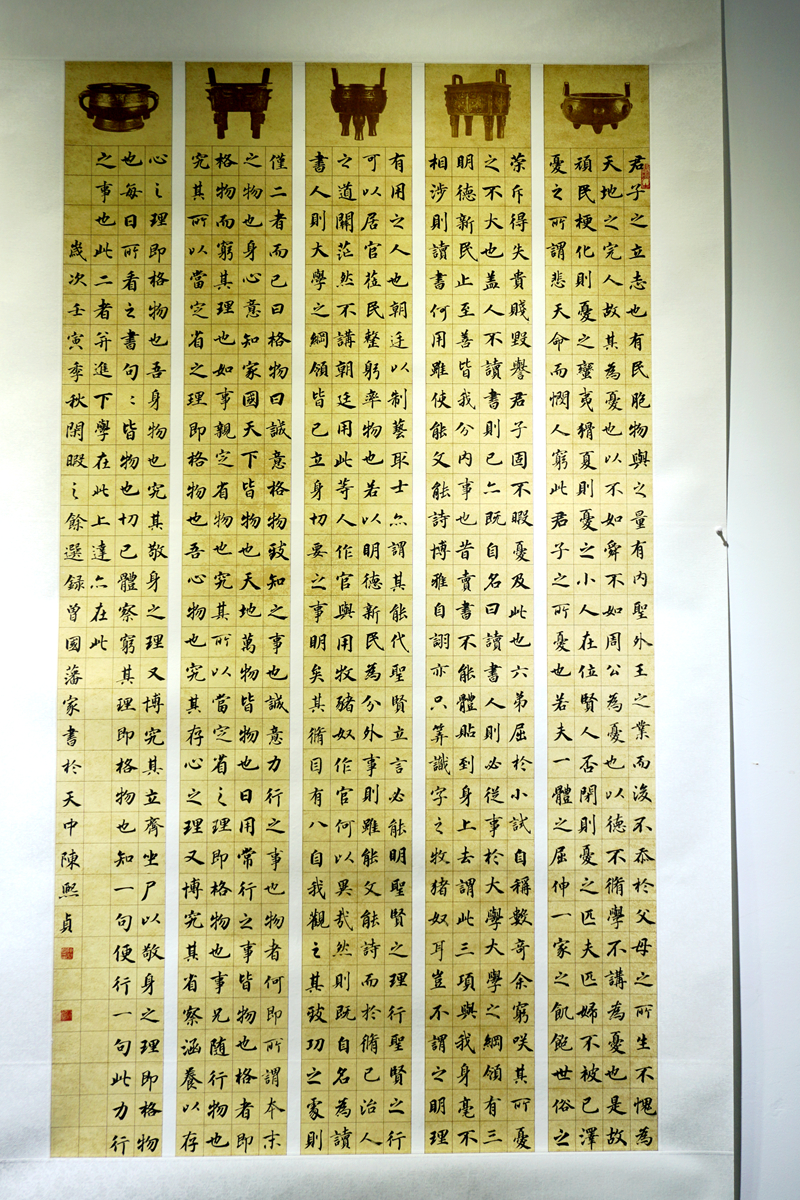 君子之立志也有民胞物與之量有內聖外王之業而後不忝於父母之所生不愧為
天地之完人故其為憂也以不如舜不如周公為憂也以德不脩學不講為憂也是故
頑民梗化則憂之蠻夷猾夏則憂之小人在位賢人否閉則憂之匹夫匹婦不被己澤
憂之所謂悲天命而憫人窮此君子之所憂也若夫一體之屈伸一家之飢飽世俗之
榮斥得失貴賤毀譽君子固不暇憂及此也六弟屈於小試自稱數奇余窮笑其所憂
之不大也蓋人不讀書則已亦既自名曰讀書人則必從事於大學大學之綱領有三
明德新民止至善皆我分內事也昔賣書不能體貼到身上去謂此三項與我身毫不
相涉則讀書何用雖使能文能詩博雅自詡亦只算識字之牧猪奴耳豈不謂之明理
有用之人也朝廷以制藝取士亦謂其能代聖賢立言必能明聖賢之理行聖賢之行
可以居官蒞民整躬率物也若以明德新民為分外事則雖能文能詩而於脩己治人
之道關茫然不講朝廷用此等人作官與用牧豬奴作官何以異哉然則既自名為讀
書人則大學之綱領皆己立身切要之事明矣其脩目有八自我觀之其致功之處則
僅二者而已曰格物曰誠意格物致知之事也誠意力行之事也物者何即所謂本末
之物也身心意知家國天下皆物也天地萬物皆物也日用常行之事皆物也格者即
格物而窮其理也如事親定省物也究其所以當定省之理即格物也事兄隨行物也
究其所以當定省之理即格物也吾心物也究其存心之理又博究其省察涵養以存
心之理即格物也吾身物也究其敬身之理又博究其立齊坐尸以敬身之理即格物
也每日所看之書句〻皆物也切己體察窮其理即格物也知一句便行一句此力行
之事也此二者并進下學在此上達亦在此
歲次壬寅季秋閑暇之餘選錄曾國藩家書於天中陳熙貞